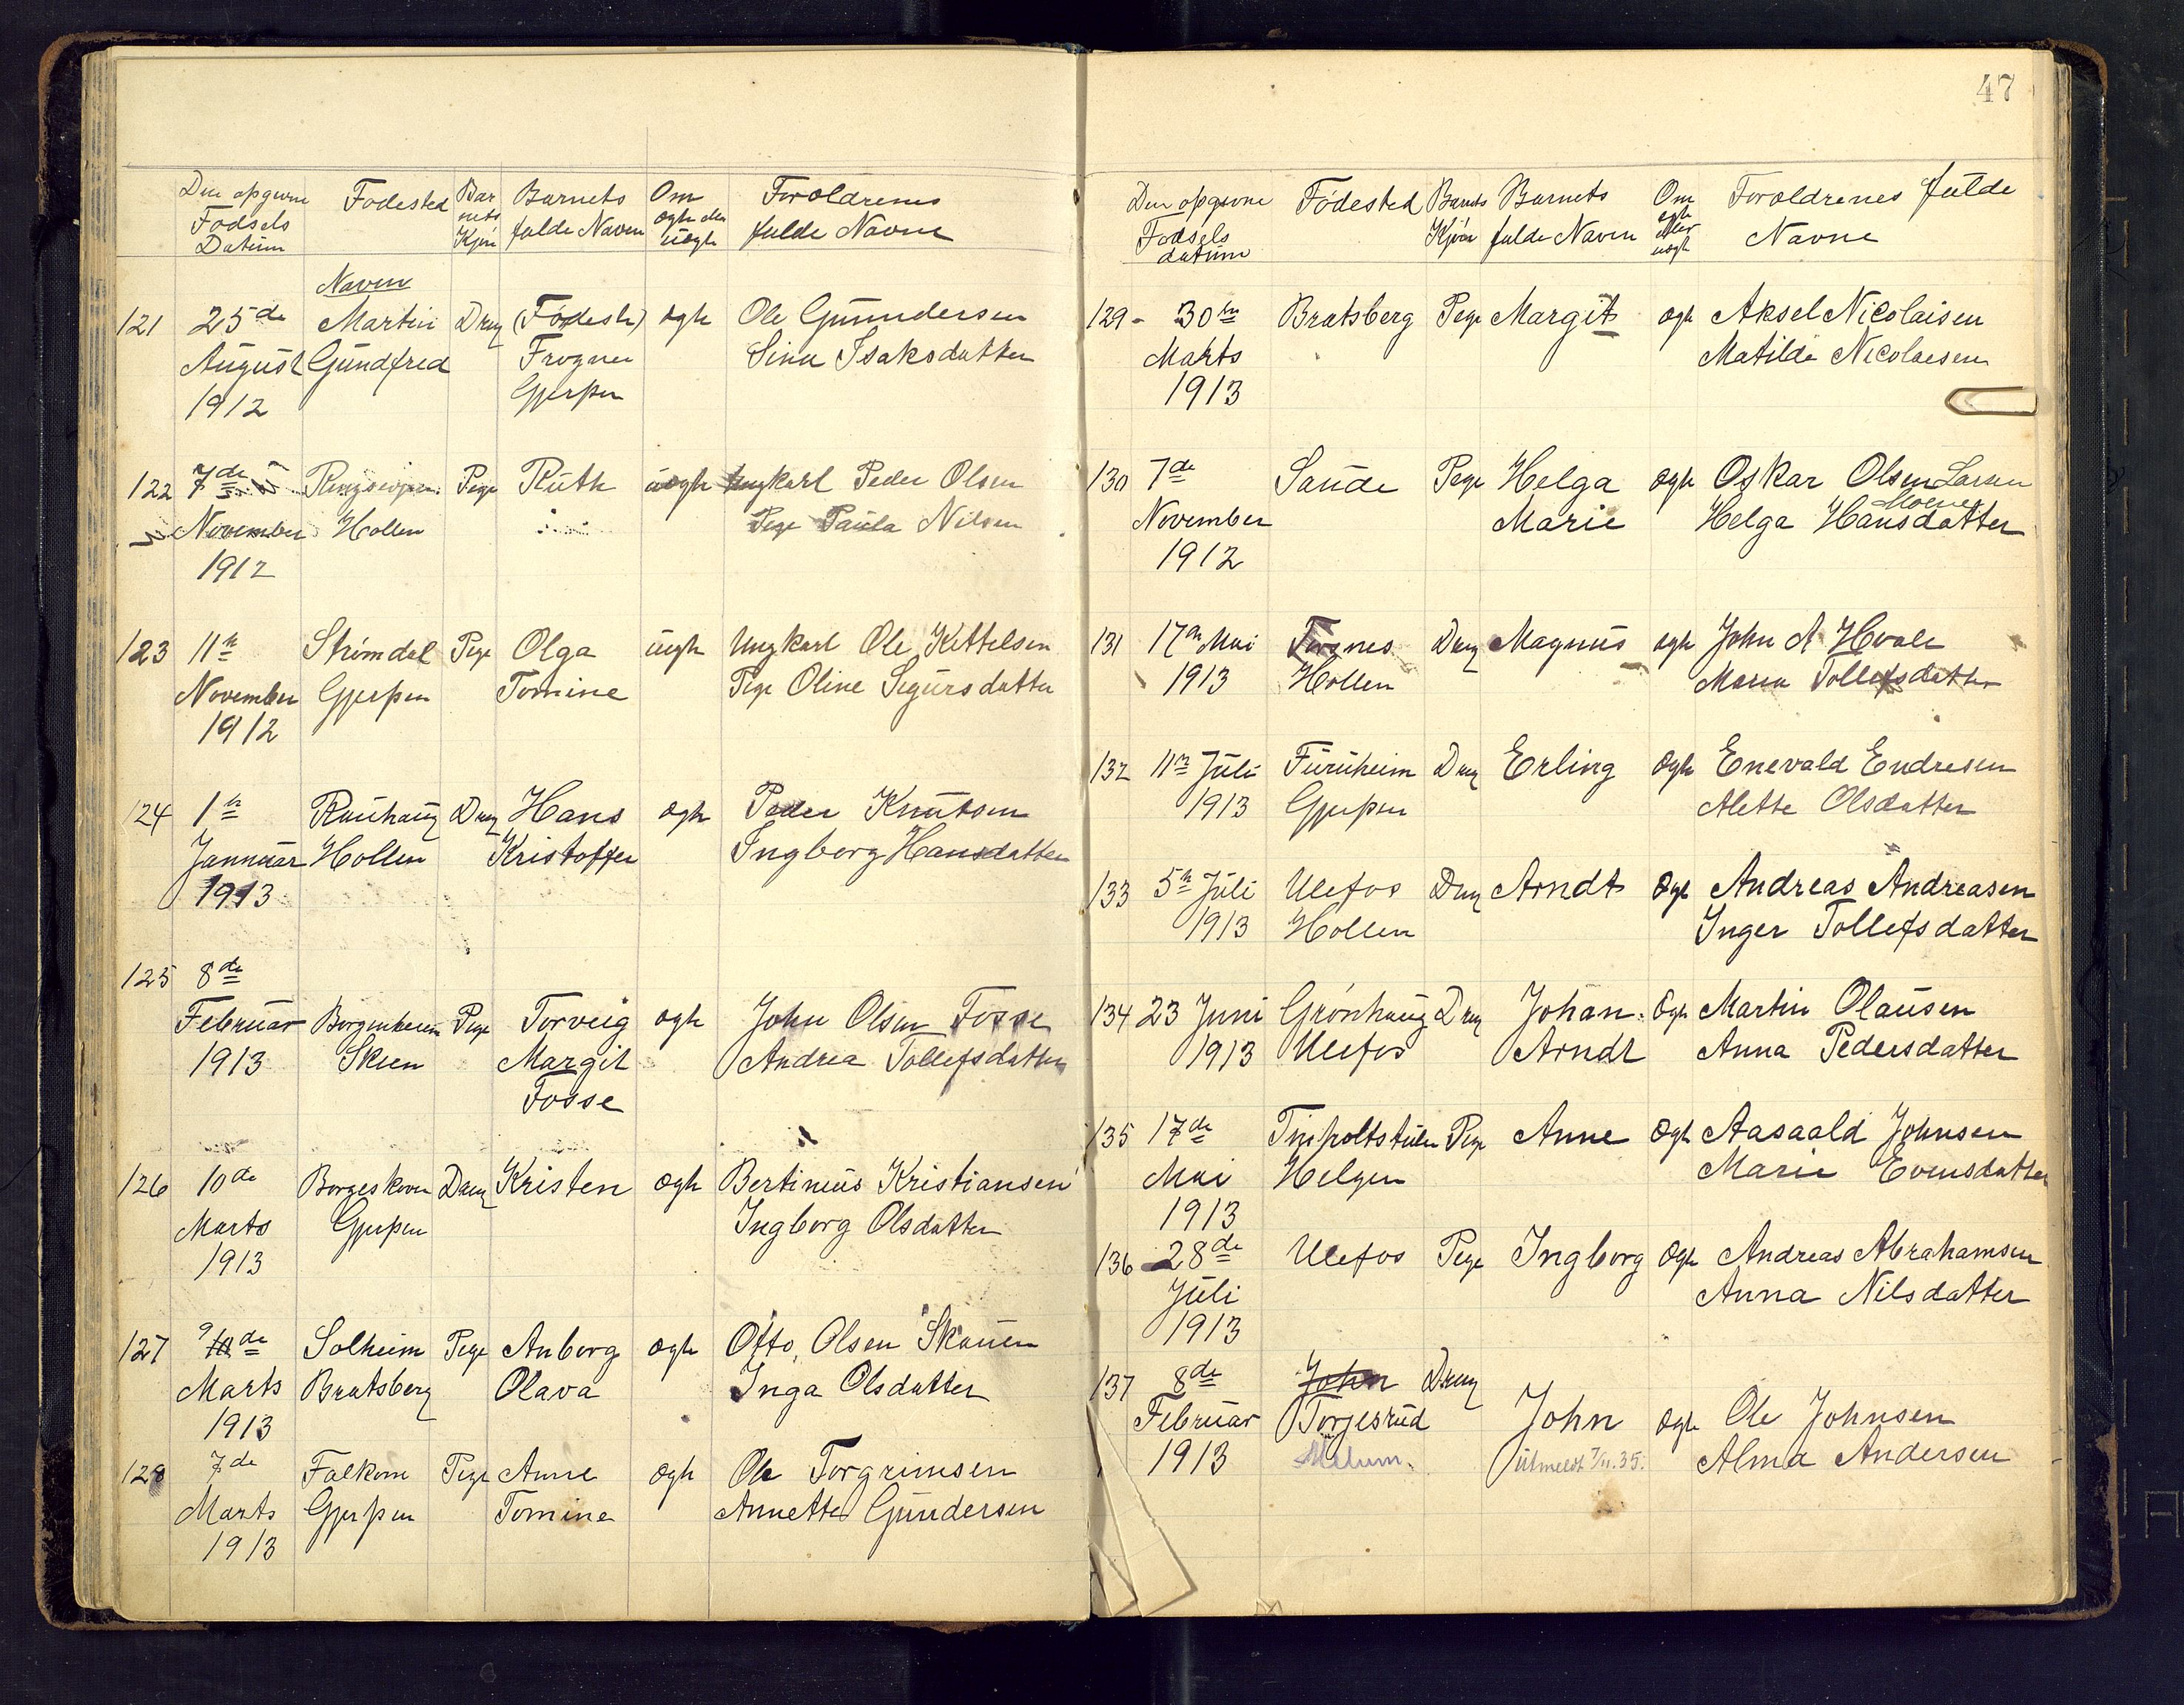 Den opgivne Fødested Bar Barnets Om Forældrenes
Fødsels nets fulde Navn ægte eller fulde Navne
Datum Kjøn uægte
Navn
121 25de Martin Dreng (Fødest) ægte Ole Gundersen
August Gundfred Frogner Sina Isaksdatter
1912 Gjerpen
122 7de Pige Ruth uægte Ungkarl Peder Olsen
November Hollen Pige Paula Nilsen
1912
123 11te Strømdal Pige Olga uægte Ungkarl Ole Kittelsen
November Gjerpen Tomine Pige Oline Sigursdatter
1912
124 1te Rauhaug Dreng Hans ægte Peder Knutsen
Januar Hollen Kristoffer Ingborg Hansdatter
1913
125 8de
Februar Borgenheim Pige Torveig ægte John Olsen Fosse
1913 Skien Margit Andrea Tollefsdatter
Fosse
126 10de Borgeskoven Dreng Kristen ægte Bertinius Kristiansen
Marts Gjerpen Ingborg Olsdatter
1913
127 9de Solheim Pige Anborg ægte Otto Olsen Skauen
Marts Bratsberg Olava Inga Olsdatter
1913
128 7de Falkum Pige Anne ægte Ole Torgrimsen
Marts Gjerpen Tomine Annette Gundersen
1913
47
Den opgivne Fødested Barnets Barnets Om Forældrenes fulde
Fødsels Kjøn fulde Navn ægte eller Navne
datum uægt
129 - 30te Bratsberg Pige Margit ægte Aksel Nicolaisen
Marts Matilde Nicolaisen
1913
130 7de Sande Pige Helga ægte Oskar Olsen Larsen
November Marie Helga Hansdatter
1912
131 17de Mai Dreng Magnus ægte John A Hvale
1913 Hollen Maren Tollefsdatter
132 11te Juli Furuheim Dreng Erling ægte Enevald Endresen
1913 Gjerpen Alette Olsdatter
133 5te Juli Ulefos Dreng Arndt ægte Andreas Andreasen
1913 Hollen Inger Tollefsdatter
134 23 Juni Grønhaug Dreng Johan Ægte Martin Olausen
1913 Ulefos Arndt Anna Pedersdatter
135 17de Pige Anne ægte Aasaald Johnsen
Mai Helgen Marie Evensdatter
1913
136 28de Ulefos Pige Ingborg ægte Andreas Abrahamsen
Juli Anna Nilsdatter
1913
137 8de John Dreng
Februar Torjesrud John ægte Ole Johnsen
1913 Melum. Utmeldt 7/11.35. Alma Andersen